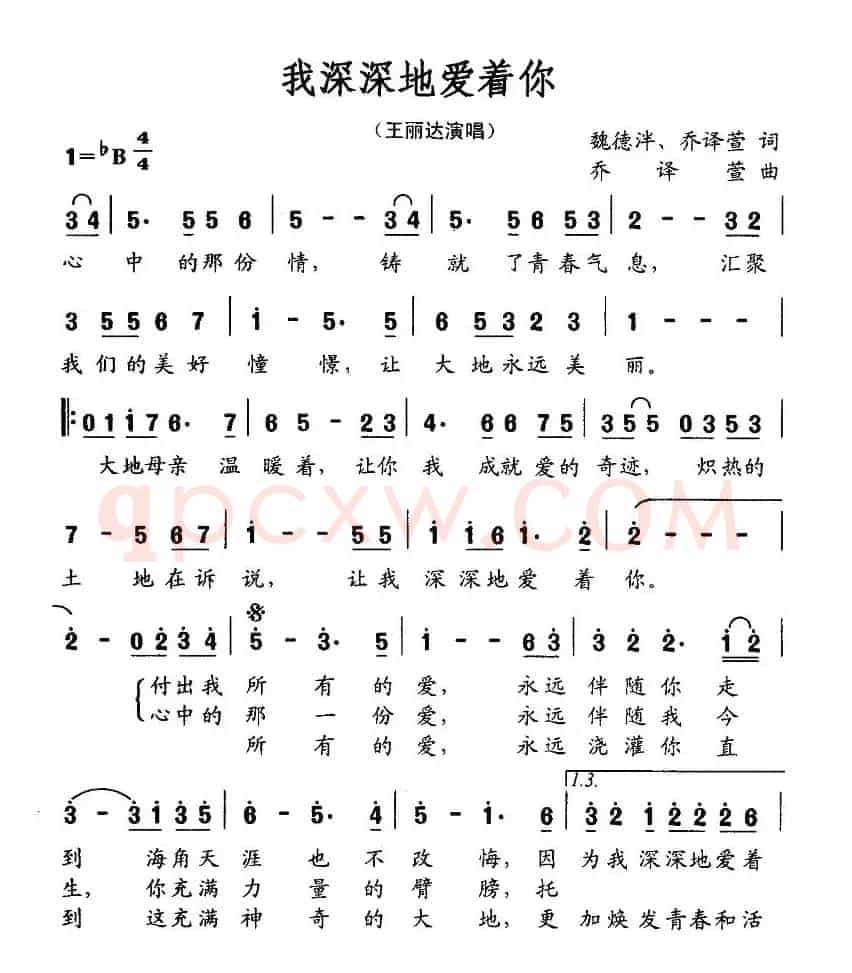 我深深地爱着你
（王丽达演唱）
1=♭B 4/4
魏德泮、乔译萱 词
乔译萱 曲
3 4 | 5· 5 5 6 | 5 - - 3 4 | 5· 5 6 5 3 | 2 - - 3 2 |
心 中 的那 份 情， 铸 就 了青春气 息， 汇聚
3 5 5 6 7 | i - 5· 5 | 6 5 5 2 3 | 1 - - |
我 们的美好 憧 憬，让 大 地永远美 丽。
0 1 i 7 6· 7 | 6 5 - 2 3 | 4· 6 6 7 5 | 3 5 5 0 3 5 3 |
大地母亲 温 暖着，让你 我 成就 爱的 奇迹， 炽热的
qpcxw.COM
7 - 5 6 7 | i - - 5 5 | i i 6 i· 2 | 2 - - - |
土 地在诉 说， 让我 深深地爱 着 你。
2 - 0 2 3 4 | 5 - 3· 5 | i - - 6 3 | 3 2 2· i 2 |
付出我 所 有 的 爱， 永远 伴 随 你 走
心中的 那 一 份 爱， 永远 伴 随 我 今
所 有 的 爱， 永远 浇 灌 你 直
1.3.
3 - 3 i 3 5 | 6 - 5· 4 | 3 - i· 6 | 3 2 i 2 2 2 6 |
到 海角天 涯 也 不 改 悔，因 为我 深深地爱着
生， 你充满 力 量 的 臂 膀，托
到 这充满 神 奇 的 大 地，更 加焕 发青春和活